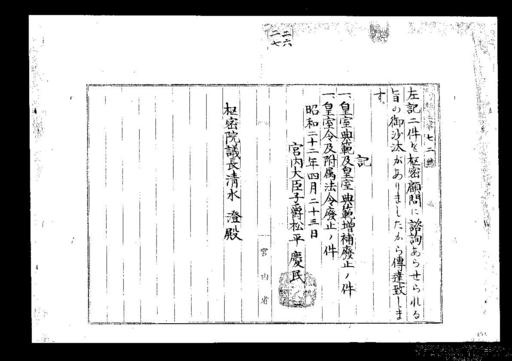 二六
二七
七二號
左記二件を枢密顧問に諮詢あらせられる
旨の御沙汰がありましたから傳達致しま
す。
記
一、皇室典範及皇室典範増補廢止ノ件
一、皇室令及附属法令廢止ノ件
昭和二十二年四月二十三日
宮内大臣子爵松平慶民
枢密院議長清水澄殿
宮内省